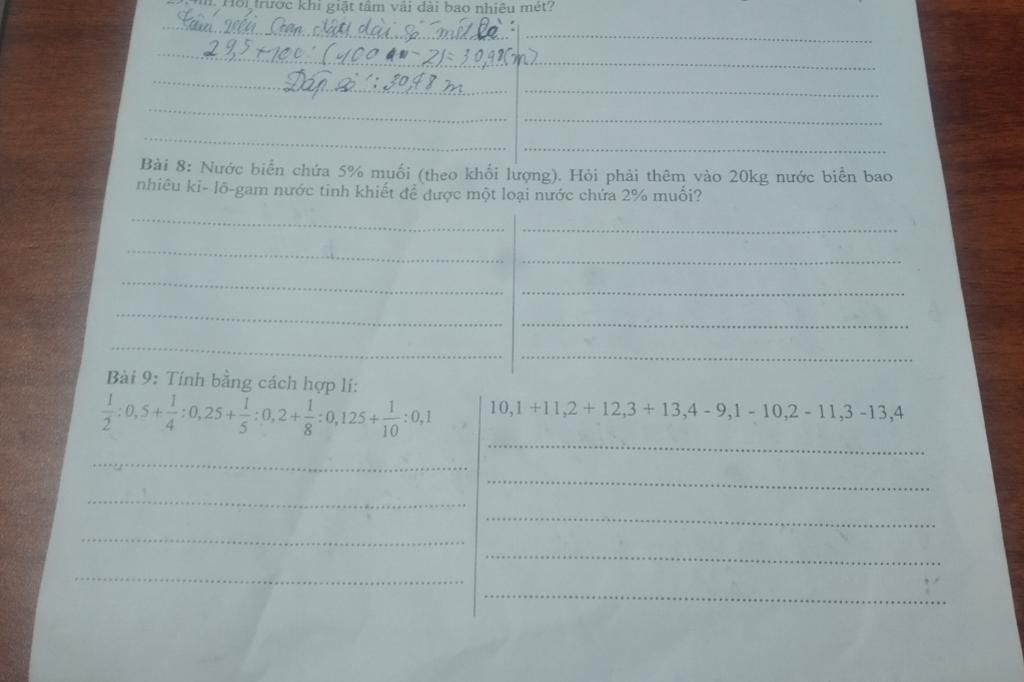 Hỏi trước khi giặt tấm vải dài bao nhiêu mét?
dài số mét là:
100 - 2) = 30,98(m)
Đáp số: 30,98 m
Bài 8: Nước biển chứa 5% muối (theo khối lượng). Hỏi phải thêm vào 20kg nước biển bao
nhiêu ki- lô-gam nước tinh khiết để được một loại nước chứa 2% muối?
Bài 9: Tính bằng cách hợp lí:
1/2 : 0,5 + 1/4 : 0,25 + 1/5 : 0,2 + 1/8 : 0,125 + 1/10 : 0,1
10,1 +11,2 + 12,3 + 13,4 - 9,1 - 10,2 - 11,3 -13,4